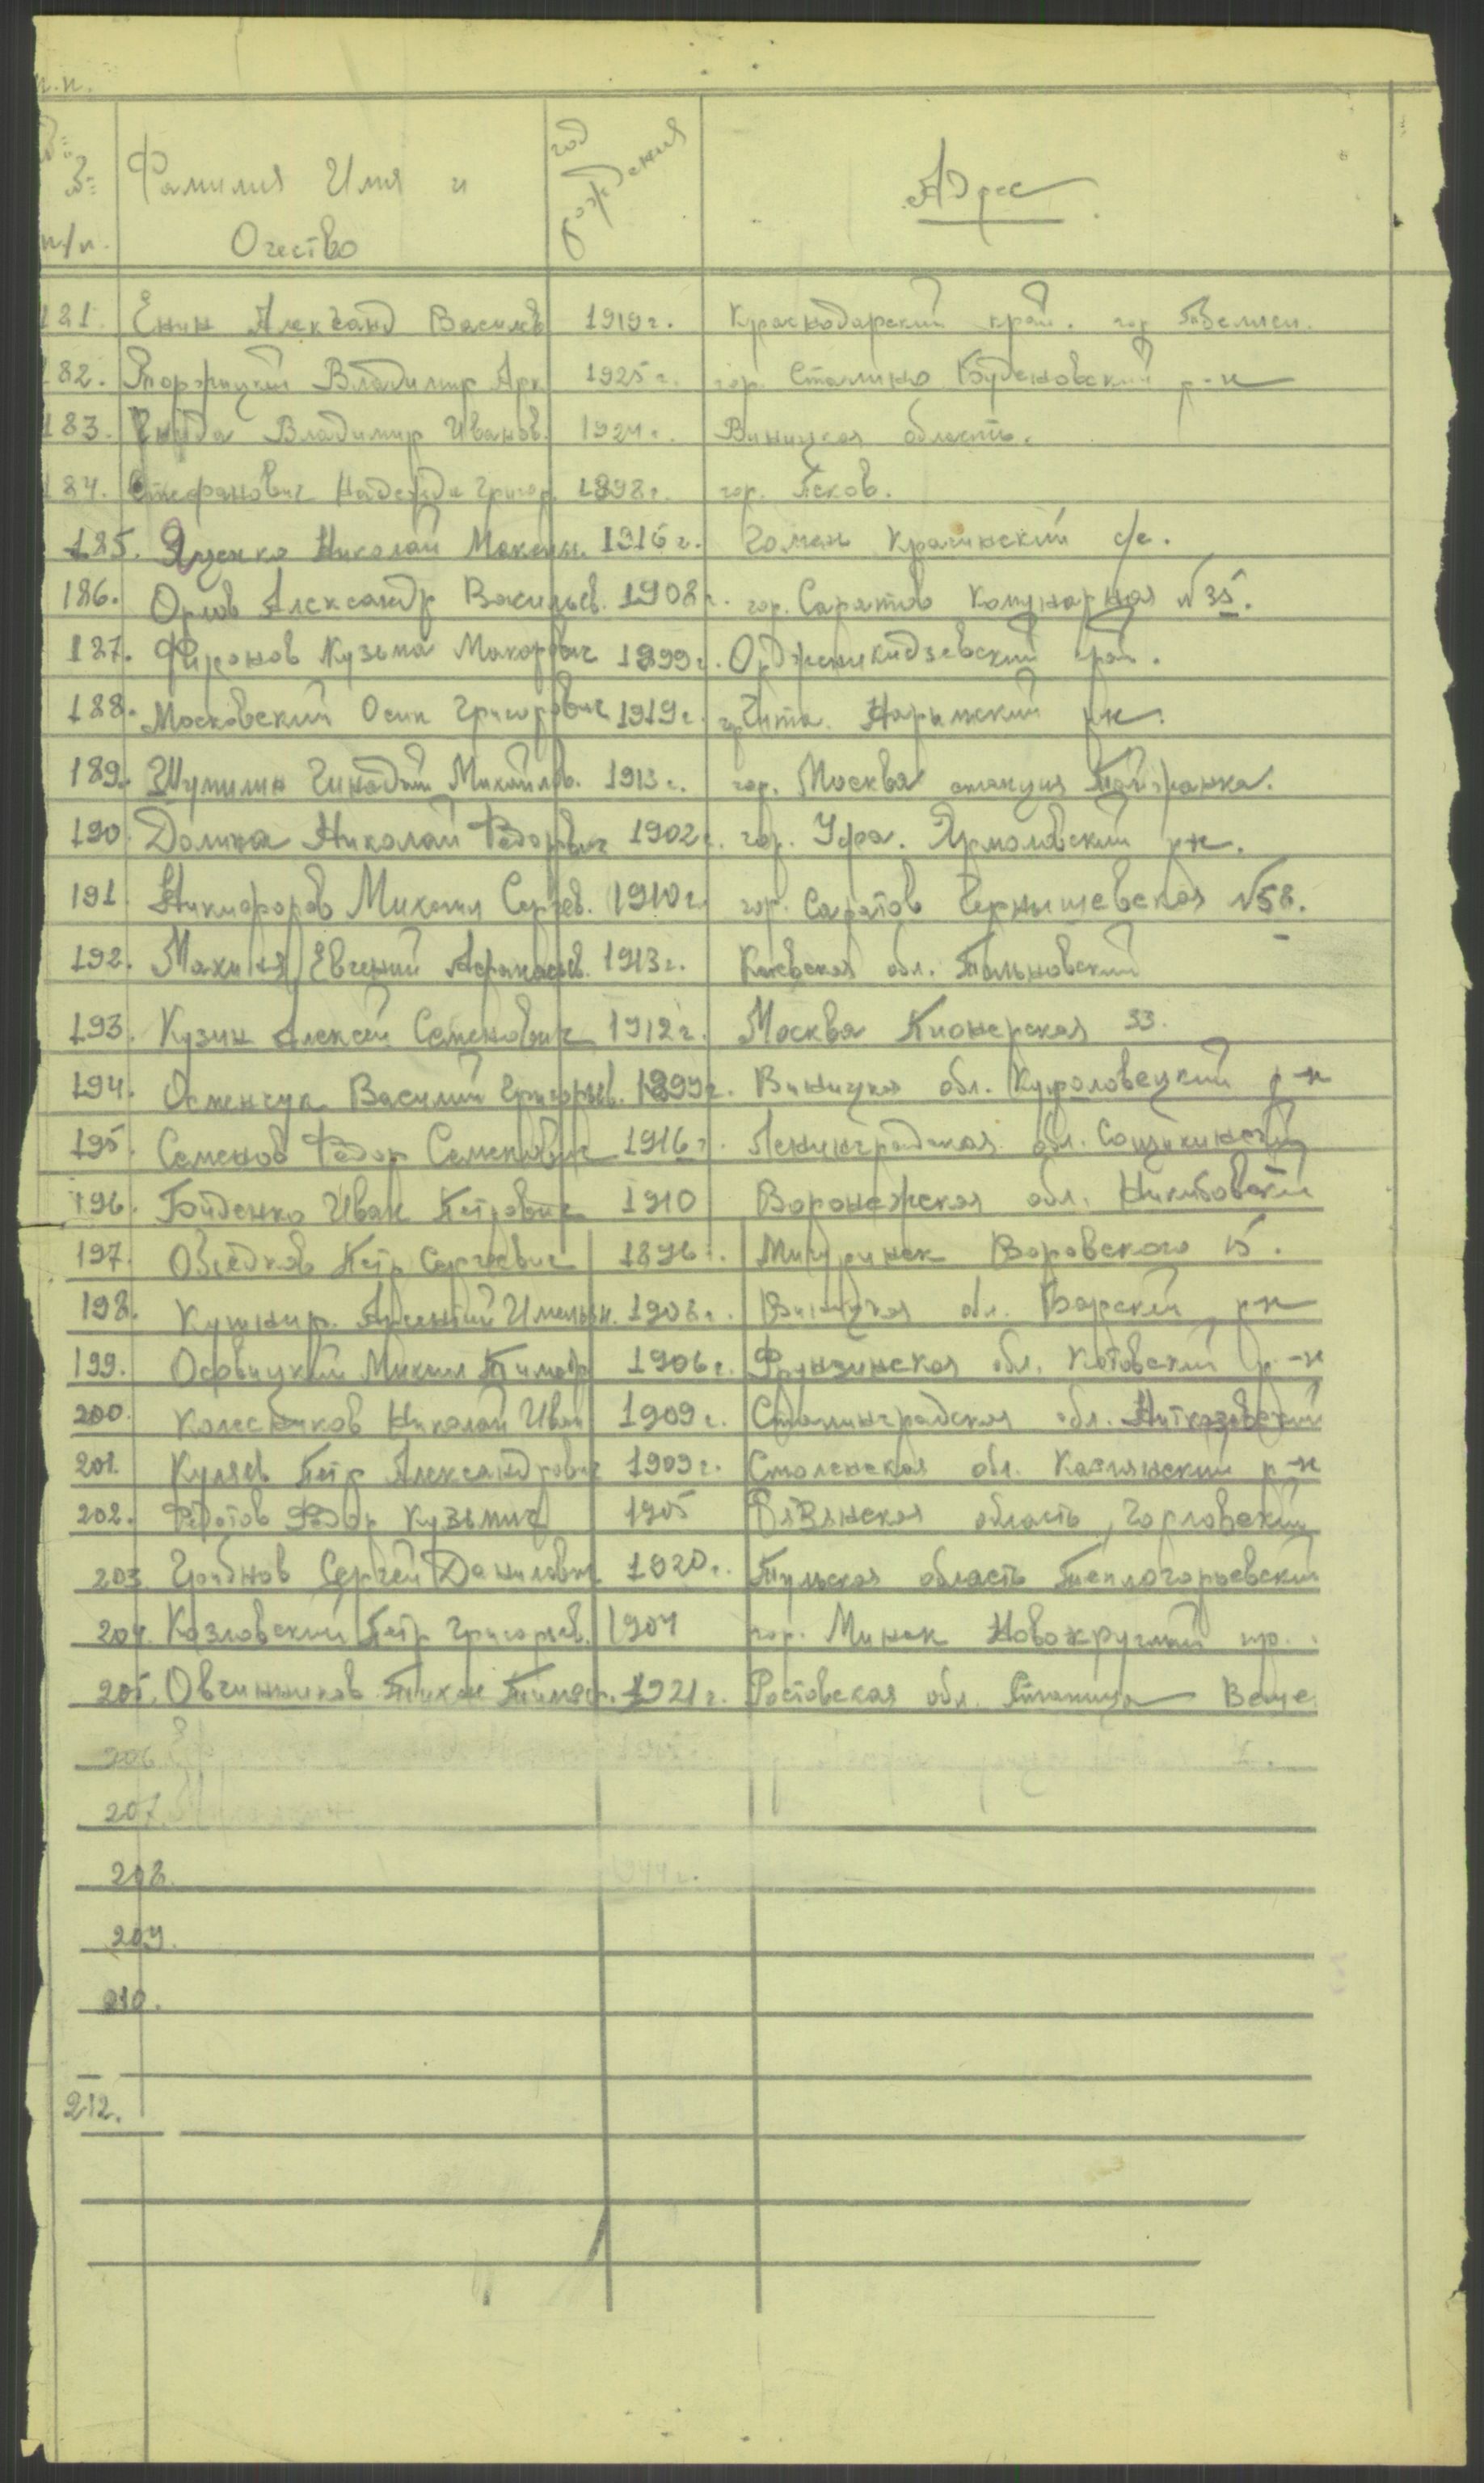 п.п.
п/п. Фамилия Имя и Очество год рождения Адрес
181. Енин Александ Василев 1919 г. Краснодарский край. гор
182. Владимир Арк 1925 г. гор. Сталино Буденовский р-н
183. Владимир Иванов. 1924 г. Виницкая область.
184. Стефанович Надежда Григор 1898 г. гор. Псков.
185. Яценко Николай Максим. 1916 г. с/с.
186. Орлов Александр Васильев. 1908 г. гор. Саратов Комунарная №35.
187. Фиронов Кузьма Макорович 1899 г. Орджоникидзевский край.
188. Московский Осип Григорович 1919 г. гор Чита. Нарымский рн.
189. Шумилин Гинадий Михайлов. 1913 г. гор. Москва станция
190. Долина Николай Федорович 1902 г. гор. Уфа. Ярмоловский рн.
191. Никифоров Михаил Сергев. 1910 г. гор. Саратов Чернышевская №58.
192. Махиня Евгений Афанасьев. 1913 г. Киевская обл. Тальновский
193. Кузин Алексей Семенович 1912 г. Москва Пионерская 33.
194. Осменчук Василий Григорьев. 1899 г. Виницкая обл. р-н
195. Семенов Федор Семенович 1916 г. Ленинградская обл.
196. Гойденко Иван Петрович 1910 Воронежская обл.
197. Овседков Петр Сергеевич 1896 г. Мичуринск Воровского 15.
198. Кушнир. Арсентий Имельян. 1908 г. Виницкая обл. Барский рн
199. Осовицкий Михаил Тимоф 1906 г. Фрунзинская обл. Котовский р-н
200. Колесников Николай Иван 1909 г. Сталинградская обл.
201. Куляев Петр Александрович 1909 г. Смоленская обл. р-н
202. Федотов Федор Кузьмич 1905 Рязянская область, Горловский
203 Грибнов Сергей Данилович 1920 г. Тульская область Теплогорьевский
204. Козловский Петр Григорьев. 1904 гор. Минск
205. Овчинников Тихон 1921 г. Ростовская обл. Станица Веше
206
207.
208.
209.
210.
212.